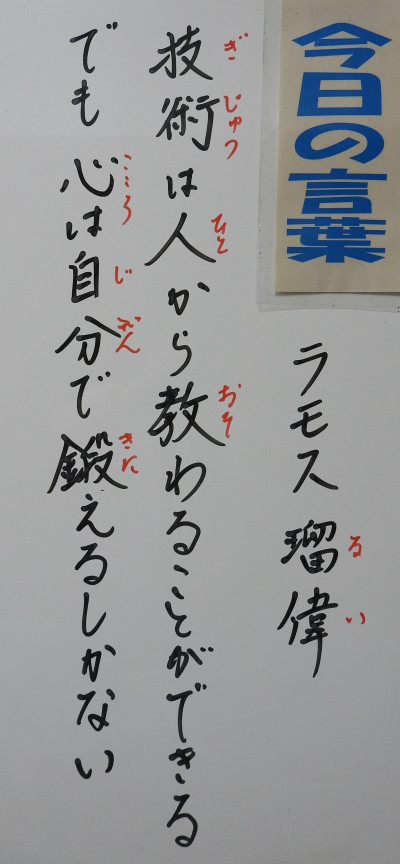 今日の言葉
ラモス瑠偉
るい
技術は人から教わることができる
ぎじゅつ ひと おそ
でも心は自分で鍛えるしかない
こころ じ ぶん きた